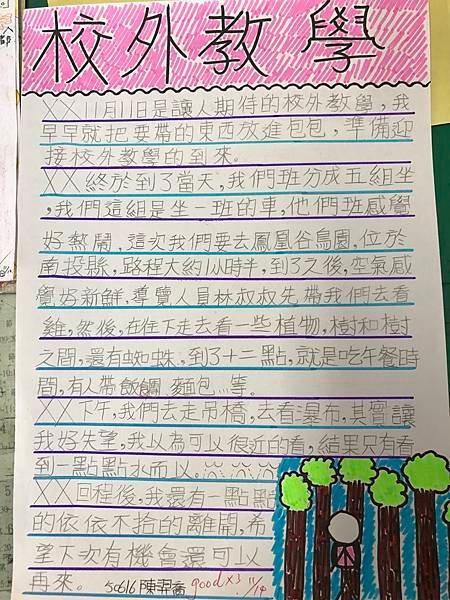 校外教學
XX11月11日是讓人期待的校外教學,我
早早就把要帶的東西放進包包,準備迎
接校外教學的到來。
XX終於到了當天,我們班分成五組坐
,我們這組是坐一班的車,他們班感覺
好熱鬧,這次我們要去鳳凰谷鳥園,位於
南投縣,路程大約1小時半,到了之後,空氣感
覺好新鮮,導覽人員林叔叔先帶我們去看
雞,然後,在往下走去看一些植物,樹和樹
之間,還有蜘蛛,到了十二點,就是吃午餐時
間,有人帶飯糰、麵包...等。
XX下午,我們去走吊橋,去看瀑布,其實讓
我好失望,我以為可以很近的看,結果只有看
到一點點水而以。
XX回程後,我還有一點點
的依依不捨的離開,希
望下次有機會還可以
再來。 50616陳羿喬 good x3 11/14